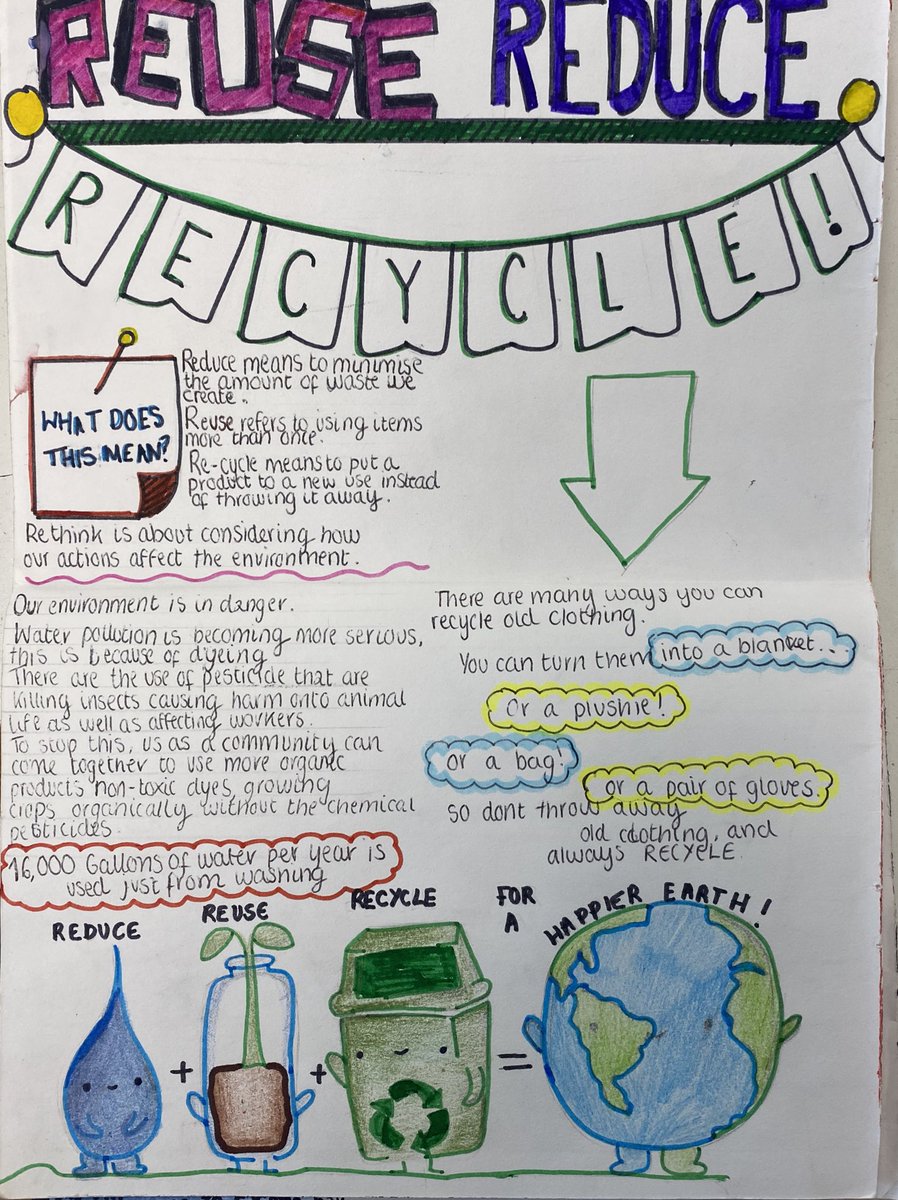 REUSE REDUCE
RECYCLE!
WHAT DOES
THIS MEAN?
Reduce means to minimise
the amount of waste we
create.
Reuse refers to using items
more than once.
Re-cycle means to put a
product to a new use instead
of throwing it away.
Rethink is about considering how
our actions affect the environment.
Our environment is in danger.
Water pollution is becoming more serious,
this is because of dyeing
There are the use of pesticide that are
killing insects causing harm onto animal
life as well as affecting workers.
To stop this, us as a community can
come together to use more organic
products non-toxic dyes, growing
crops organically without the chemical
pesticides.
16,000 Gallons of water per year is
used just from washing
There are many ways you can
recycle old clothing.
You can turn them into a blanket..
Or a plushie!
or a bag!
or a pair of gloves.
so dont throw away
old clothing, and
always RECYCLE.
REDUCE
REUSE
RECYCLE
FOR
A
HAPPIER EARTH!
+
+
=